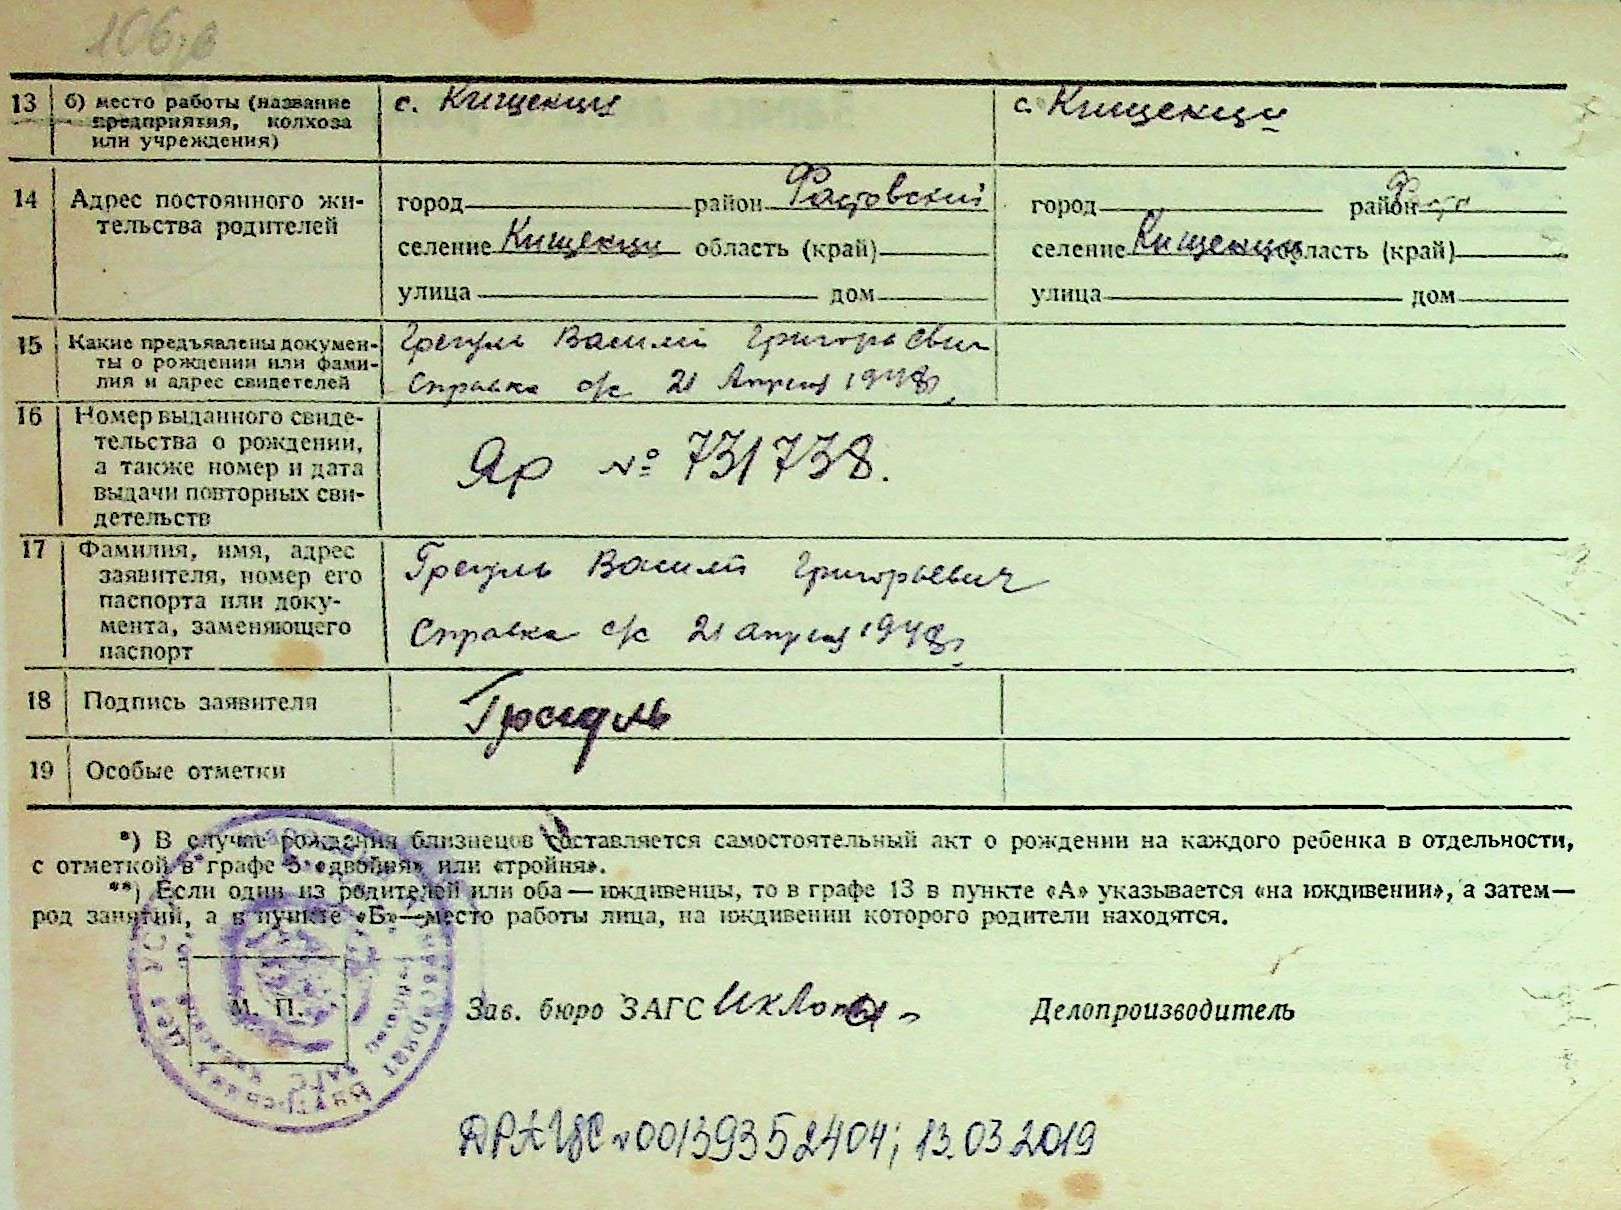 13 б) место работы (название предприятия, колхоза или учреждения) с. Кищенци с. Кищенци
14 Адрес постоянного жительства родителей
город район Фастовский город район
селение Кищенци область (край) селение Кищенци область (край)
улица дом улица дом
15 Какие предъявлены документы о рождении или фамилия и адрес свидетелей
Василий Григорьевич
Справка с/с 21 Апреля 1948г.
16 Номер выданного свидетельства о рождении, а также номер и дата выдачи повторных свидетельств
Яр № 731738.
17 Фамилия, имя, адрес заявителя, номер его паспорта или документа, заменяющего паспорт
Василий Григорьевич
Справка с/с 21 апреля 1948г.
18 Подпись заявителя
19 Особые отметки
*) В случае рождения близнецов составляется самостоятельный акт о рождении на каждого ребенка в отдельности,
с отметкой в графе 5 «двойня» или «тройня».
**) Если один из родителей или оба — иждивенцы, то в графе 13 в пункте «А» указывается «на иждивении», а затем—
род занятий, а в пункте «Б»—место работы лица, на иждивении которого родители находятся.
М. П. Зав. бюро ЗАГС Делопроизводитель
ДРАЦС №00139352404; 13.03.2019